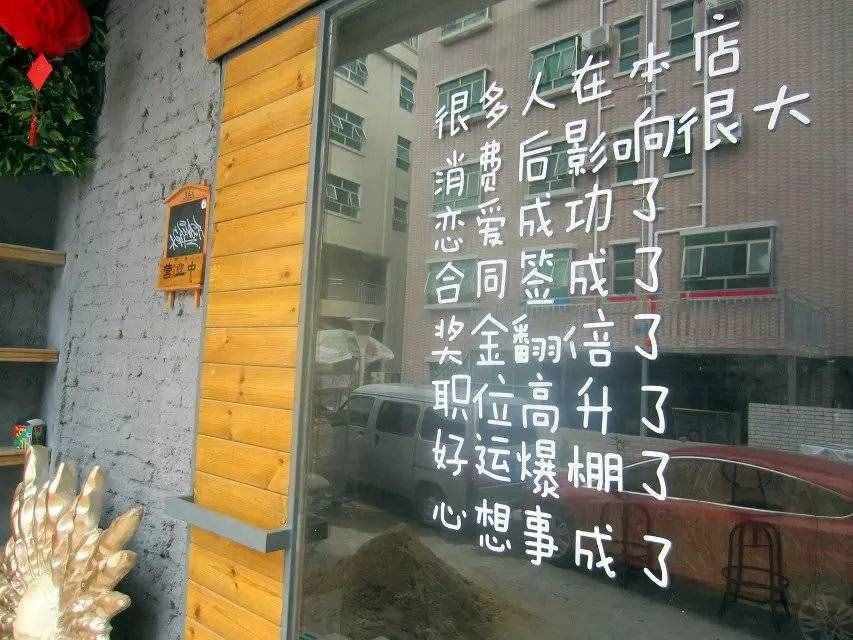 很多人在本店
消费后影响很大
恋爱成功了
合同签成了
奖金翻倍了
职位高升了
好运爆棚了
心想事成了
营业中